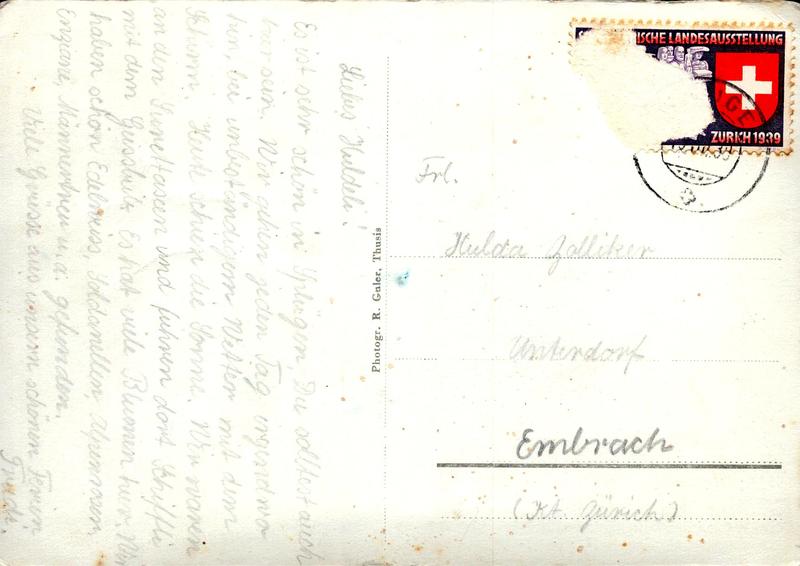 Liebes Huldeli!
Es ist sehr schön in Splügen, Du solltest auch
hier sein. Wir gehen jeden Tag irgendwo
hin, bei unbeständigem Wetter mit dem
Schirm. Heute scheint die Sonne. Wir waren
an den Surettaseen und fuhren dort Schiffli
mit dem Gummi. Es hat viele Blumen hier. Wir
haben schon Edelweiss, Alpenrosen,
Enziane, Männertreu u.a. gefunden.
Viele Grüsse aus unsern schönen Ferien
Trudi.
Photogr. R. Guler, Thusis
ISCHE LANDESAUSSTELLUNG
ZÜRICH 1939
Frl.
Hulda Zolliker
Unterdorf
Embrach
(Kt. Zürich)